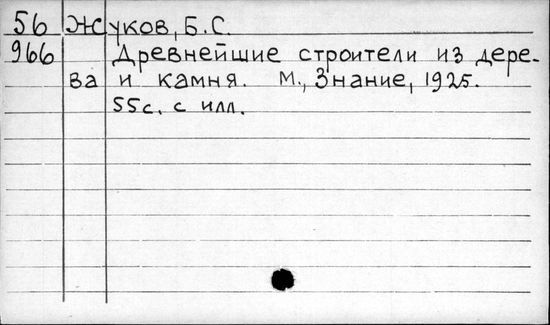 56 Жуков, Б.С.
966 Древнейшие строители из дере-
ва и камня. М., Знание, 1925.
55с. с илл.